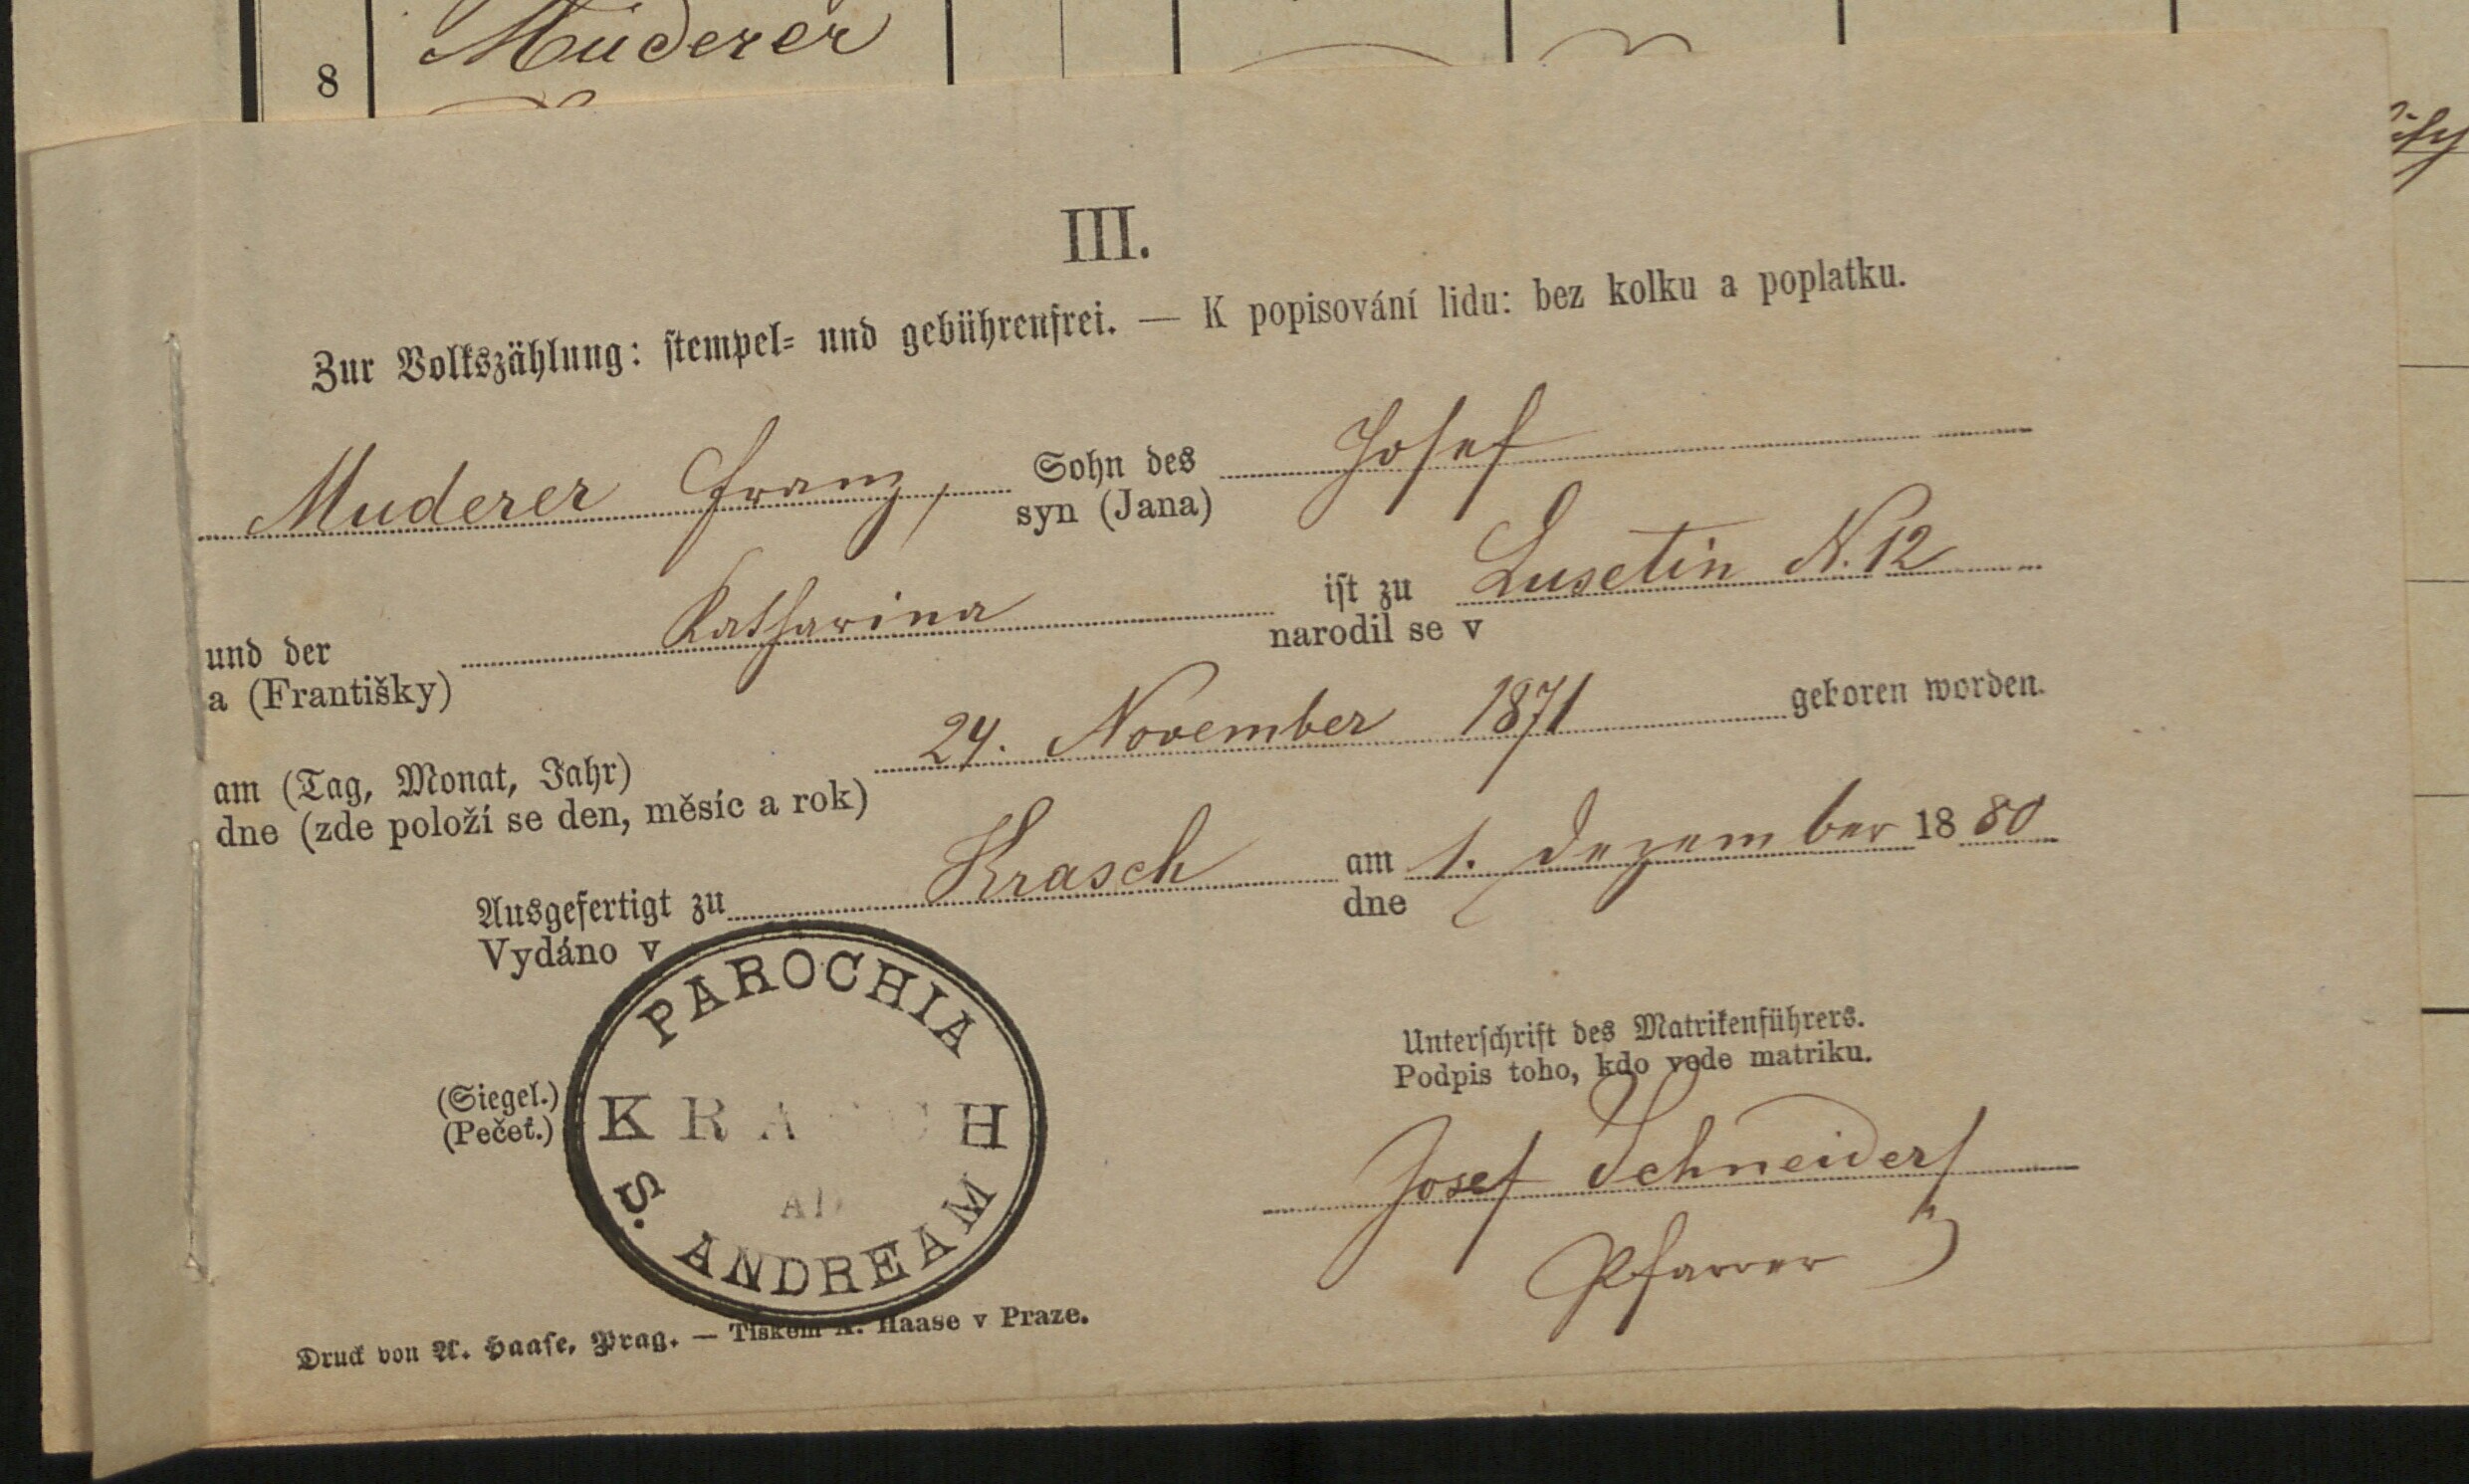 Muderer
8
III.
Zur Volkszählung: stempel- und gebührenfrei. — K popisování lidu: bez kolku a poplatku.
Muderer Franz, Sohn des Josef
syn (Jana)
und der Katharina ist zu Lusetin N. 12
a (Františky) narodil se v
am (Tag, Monat, Jahr) 24. November 1871 geboren worden.
dne (zde položí se den, měsíc a rok)
Ausgefertigt zu Krasch am 1. Dezember 1880
Vydáno v dne
PAROCHIA
KRASCH
AD
S. ANDREAM
(Siegel.)
(Pečeť.)
Unterschrift des Matrikenführers.
Podpis toho, kdo vede matriku.
Josef Schneider
Pfarrer
Druck von A. Haase, Prag. — Tiskem A. Haase v Praze.